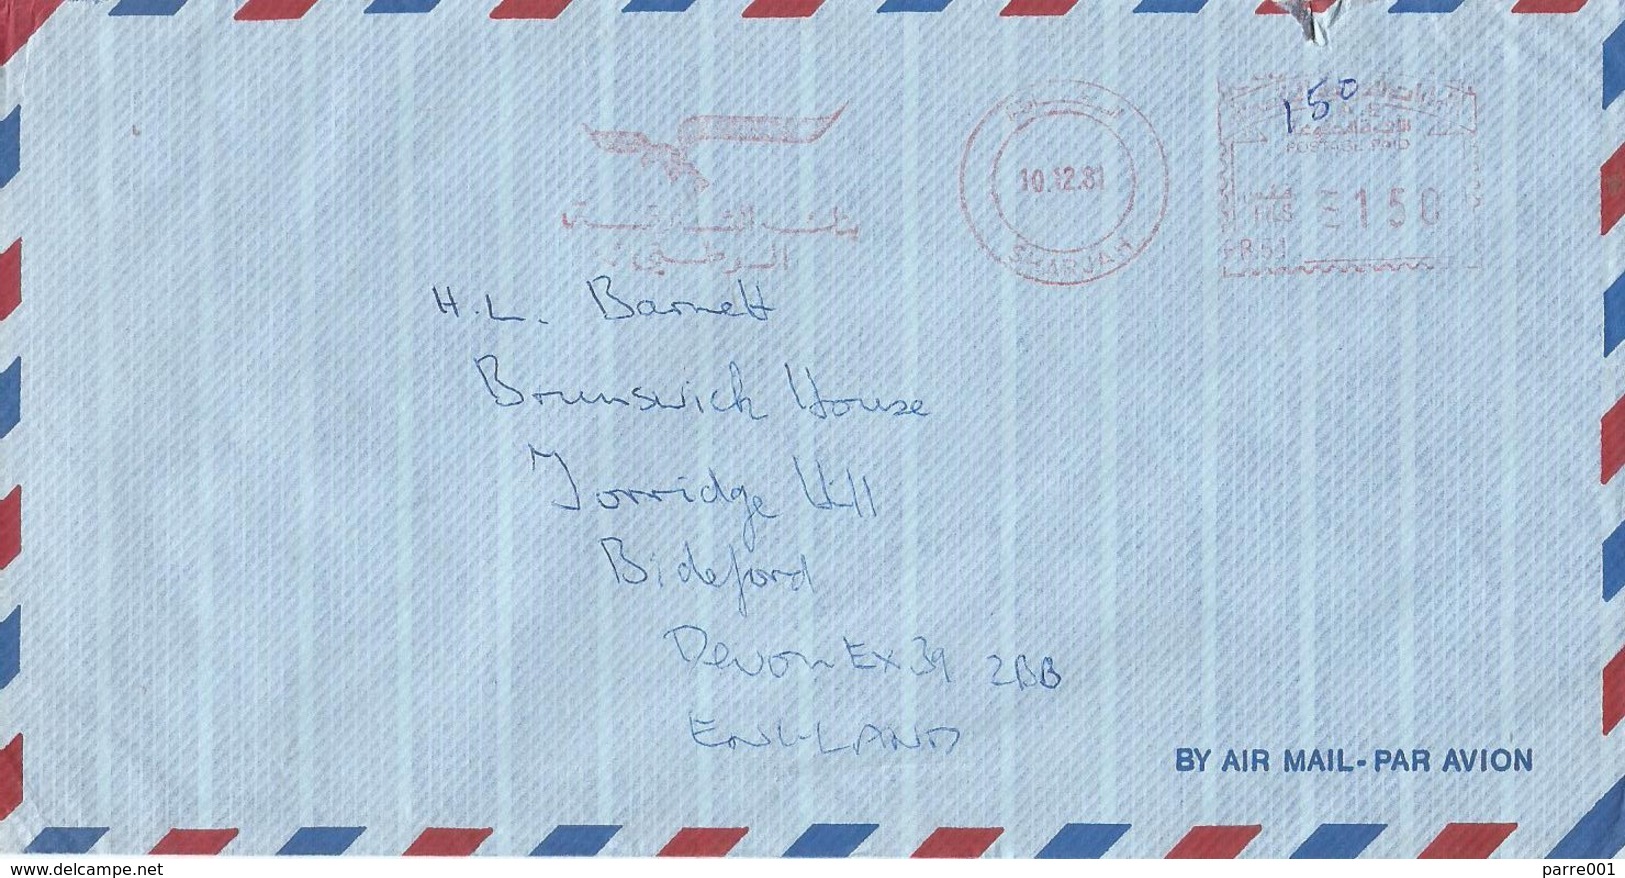 150
U.A.E
POSTAGE PAID
FILS 150
PB.51
10.12.81
SHARJAH
H.L. Barnett
Brunswick House
Torridge Hill
Bideford
Devon EX39 2BB
ENGLAND
BY AIR MAIL-PAR AVION
delcampe.net
parre001